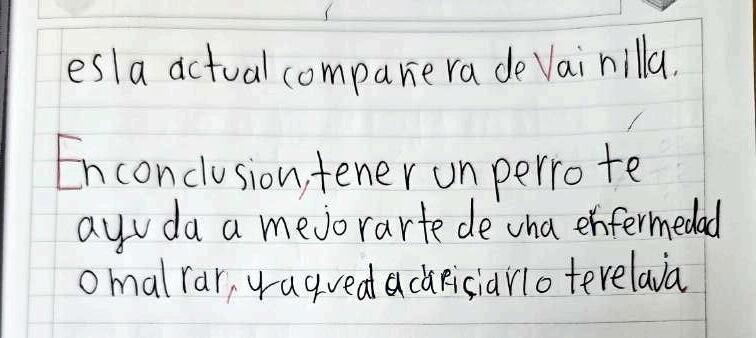 es la actual compañera de Vainilla.
En conclusion, tener un perro té
ayuda a mejorarte de una enfermedad
o mal rar, ya que al acariciarlo te relaja